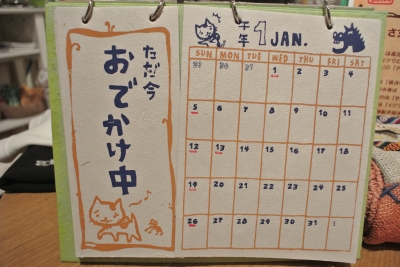 ただ今
おでかけ中
午年 1 JAN.
SUN MON TUE WED THU FRI SAT
29 30 31 1 2 3 4
5 6 7 8 9 10 11
12 13 14 15 16 17 18
19 20 21 22 23 24 25
26 27 28 29 30 31 1